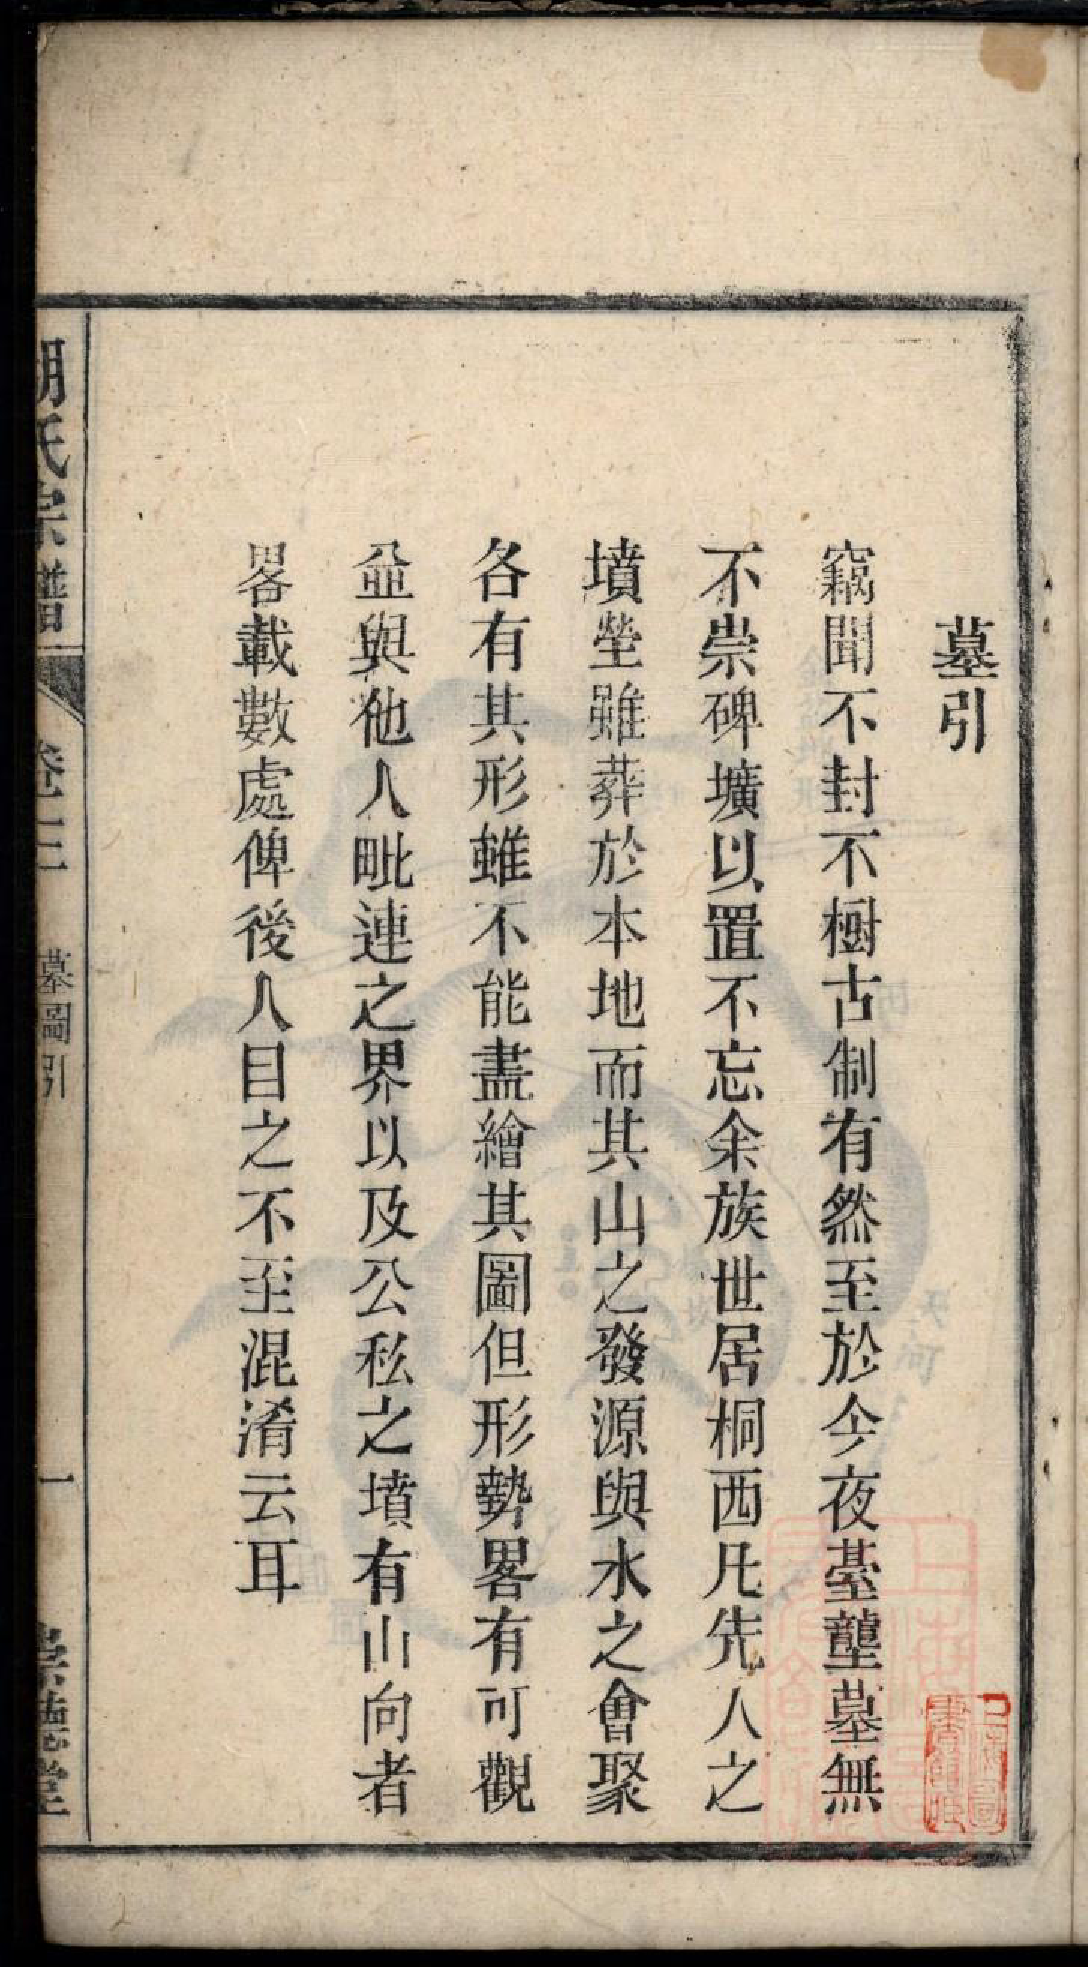 墓引
竊聞不封不樹古制有然至於今夜臺壟墓無
不崇碑壙以置不忘余族世居桐西凡先人之
墳塋雖葬於本地而其山之發源與水之會聚
各有其形雖不能盡繪其圖但形勢畧有可觀
並與他人毗連之界以及公私之墳有山向者
畧載數處俾後人目之不至混淆云耳
胡氏宗譜
卷二
墓圖引
一
崇德堂